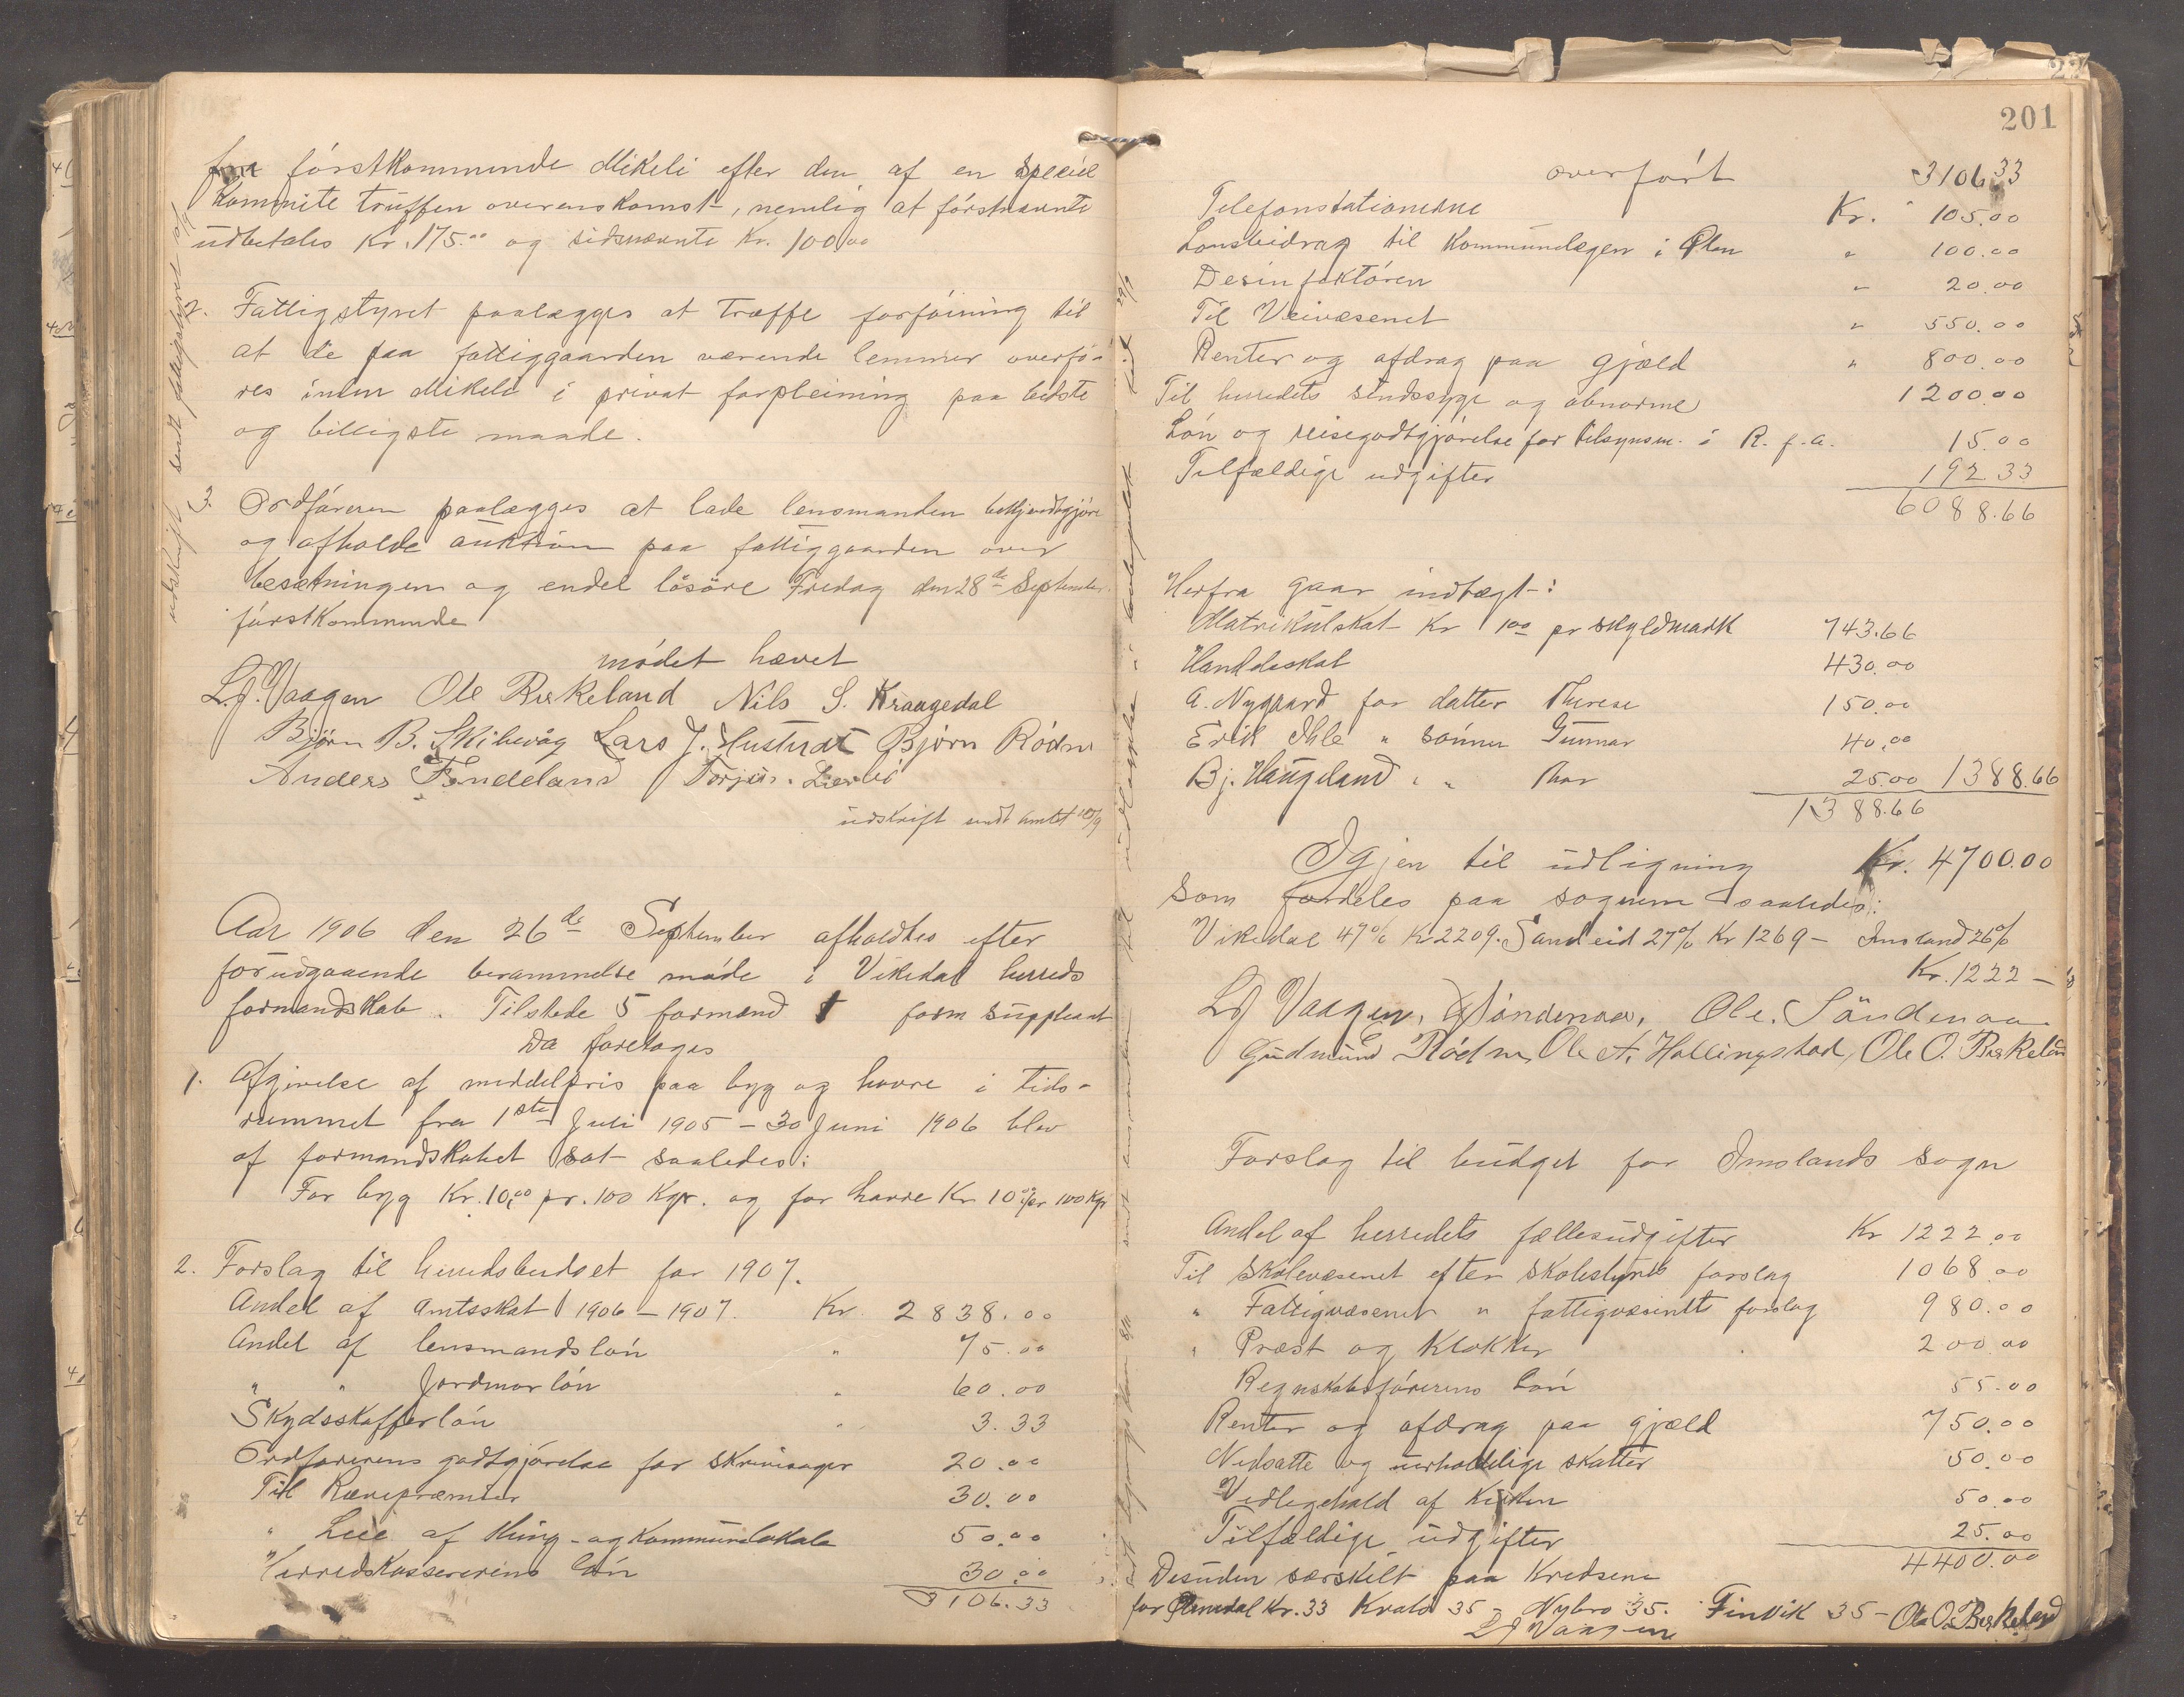 fra förstkommende Mikeli efter den af en speciel
Kommite truffen overenskomst, nemlig at förstnævnte
udbetales Kr. 175.00 og sidsnævnte Kr. 100.00
2. Fattigstyret paalægges at træffe forföining til
at de paa fattiggaarden værende lemmer overfö-
res inden Mikeli i privat forpleining paa bedste
og billigste maade.
3. Ordföreren paalægges at lade lensmanden bekjendtgjöre
og afholde auktion paa fattiggaarden over
besætningen og endel lösöre Fredag den 28de September
förstkommende
mödet hævet
L.J. Vaagen Ole Birkeland Nils S. Kraagedal
Björn B. Skihevåg Lars J. Hustvedt Björn Rödne
Anders Fendeland Torjus Lierlie
udskrift sendt amtet 18/9
Aar 1906 den 26de September afholdtes efter
forudgaaende berammelse möde i Vikedal herreds
formandskab. Tilstede 5 formænd 1 form suppleant
Da foretoges
1. Afgivelse af middelpris paa byg og havre i tids-
rummet fra 1ste Juli 1905 – 30 Juni 1906 blev
af formandskabet sat saaledes:
For byg Kr. 10.00 pr. 100 Kgr. og for havre Kr 10.00 pr 100 Kgr
2. Forslag til herredsbudget for 1907.
Andel af Amtsskat 1906 – 1907. Kr. 2838.00
Andel af lensmandslön " 75.00
" " Jordmorlön " 60.00
Skydsskafferlön " 3.33
Ordförerens godtgjörelse for skrivsager 20.00
Til Rævepræmier 30.00
" Leie af thing- og Kommunelokale 50.00
Herredskassererens lön 30.00
3106.33
201
overfört 3106 33
Telefonstationerne Kr. 105.00
Lönsbidrag til Kommunelægen i Ølen " 100.00
Desinfektören " 20.00
Til Veivæsenet " 550.00
Renter og afdrag paa gjæld " 800.00
Til herredets sindssyge og abnorme 1200.00
Lön og reisegodtgjörelse for tilsynsm. i R. f. a. 15.00
Tilfældige udgifter 192 33
6088.66
Herfra gaar indtægt:
Matrikulskat Kr 1.00 pr skyldmark 743.66
Handdeskat 430.00
A. Nygaard for datter Therese 150.00
Erik Ihle " sönnen Gunnar 40.00
Bj. Haugeland " " Thor 25.00 1388.66
1388.66
Igjen til udligning Kr. 4700.00
som fordeles paa sognene saaledes:
Vikedal 47% Kr 2209. Sandeid 27% Kr 1269 – Imsland 26%
Kr. 1222 –
LJ Vaagen, Söndenaa, Ole. Söndenaa
Gudmund E Rödne, Ole A. Hallingstad, Ole O. Birkeland
Forslag til budget for Imslands sogn
Andel af herredets fællesudgifter Kr 1222.00
Til skolevæsenet efter skolestyrets forslag 1068.00
" Fattigvæsenet " fattigvæsenets forslag 980.00
" Præst og Klokker 200.00
Regnskabsförerens lön 55.00
Renter og afdrag paa gjæld 750.00
Nedsatte og uerholdelige skatter 50.00
Vedligehold af Kirken 50.00
Tilfældige udgifter 25.00
4400.00
Desuden særskilt paa Kredsene
for Ølmedal Kr. 33 Kvalö 35 – Nybro 35. Finvik 35 – Ole O. Birkeland
LJ Vaagen